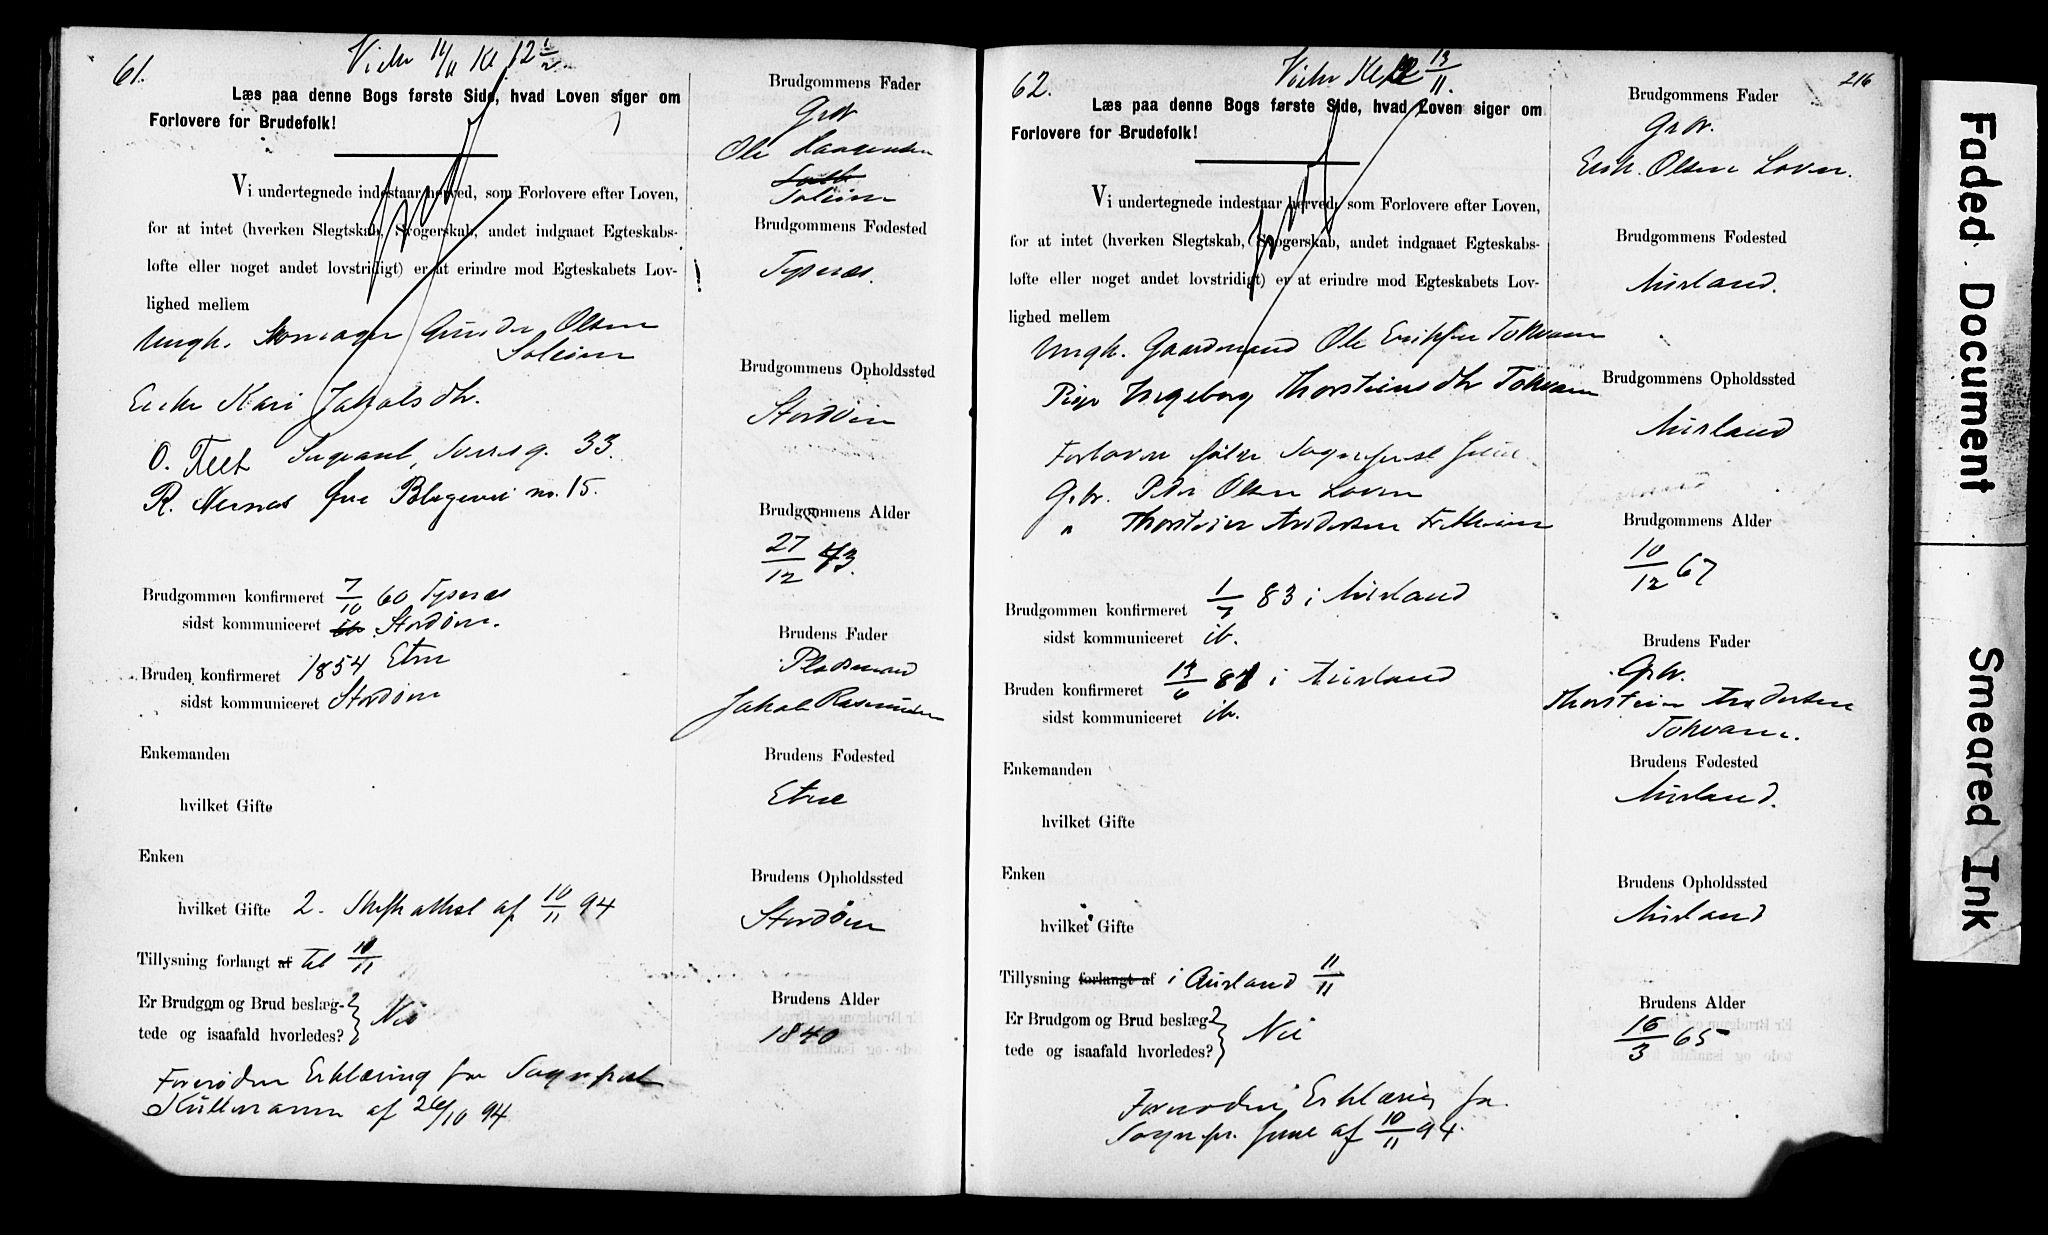 61.
Vies 14/11 Kl 12 1/2
Læs paa denne Bogs første Side, hvad Loven siger om
Forlovere for Brudefolk!
Vi undertegnede indestaar herved, som Forlovere efter Loven,
for at intet (hverken Slegtskab, Svogerskab, andet indgaaet Egteskabs-
løfte eller noget andet lovstridigt) er at erindre mod Egteskabets Lov-
lighed mellem
Ungk. Skomager Gunder Olsen
Soleim
Enke Kari Jakobsdtr.
O. Tveet Sergeant, 33.
R. Nernes Øvre Blegevei no. 15.
Brudgommen konfirmeret 7/10 60 Tysvær
sidst kommuniceret ib. Stordøen.
Bruden konfirmeret 1854 Etne
sidst kommuniceret Stordøen
Enkemanden
hvilket Gifte
Enken
hvilket Gifte 2. Skifteattest af 10/11 94
Tillysning forlangt af til 10/11
Er Brudgom og Brud beslæg-
tede og isaafald hvorledes? Nei
Fornøden Erklæring fra Sogneprest
Kullmann af 26/10 94
Brudgommens Fader
Grdbr.
Ole Haagensen
Soleim
Brudgommens Fødested
Tysvær.
Brudgommens Opholdssted
Stordøen
Brudgommens Alder
27/12 43.
Brudens Fader
Pladsmand
Jakob Rasmussen
Brudens Fødested
Etne
Brudens Opholdssted
Stordøen
Brudens Alder
1840
62.
Vies Kl 12 13/11.
216
Læs paa denne Bogs første Side, hvad Loven siger om
Forlovere for Brudefolk!
Vi undertegnede indestaar herved, som Forlovere efter Loven,
for at intet (hverken Slegtskab, Svogerskab, andet indgaaet Egteskabs-
løfte eller noget andet lovstridigt) er at erindre mod Egteskabets Lov-
lighed mellem
Ungk. Gaardmand Ole Eriksen Tokvam
Pige Ingeborg Thorsteinsdtr Tokvam
Forlovere følge Sogneprest
Grbr. Peder Olsen Loven
" Thorstein Andersen Fretheim
Brudgommen konfirmeret 1/7 83 i Aurland
sidst kommuniceret ib.
Bruden konfirmeret 13/6 81 i Aurland
sidst kommuniceret ib.
Enkemanden
hvilket Gifte
Enken
hvilket Gifte
Tillysning forlangt af i Aurland 11/11
Er Brudgom og Brud beslæg-
tede og isaafald hvorledes? Nei
Fornøden Erklæring fra
Sognepr. af 10/11 94.
Brudgommens Fader
Grdbr.
Erik Olsen Loven.
Brudgommens Fødested
Aurland.
Brudgommens Opholdssted
Aurland
Brudgommens Alder
10/12 67
Brudens Fader
Grbr.
Thorstein Andersen
Tokvam.
Brudens Fødested
Aurland.
Brudens Opholdssted
Aurland
Brudens Alder
16/3 65
Faded Document
Smeared Ink